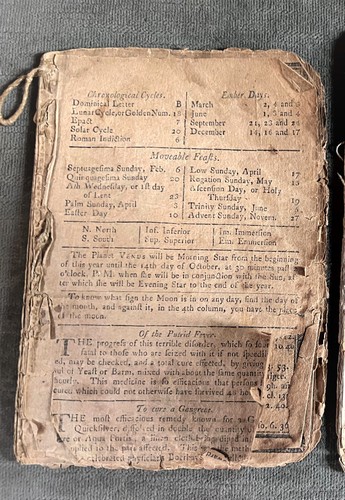 Chronological Cycles.
Dominical Letter B
Lunar Cycle, or Golden Num. 18
Epact 7
Solar Cycle 20
Roman Indiction 6
Ember Days.
March 2, 4 and 5
June 1, 3 and 4
September 21, 23 and 24
December 14, 16 and 17
Moveable Feaſts.
Septuagesima Sunday, Feb. 6
Quinquageſima Sunday 20
Aſh Wedneſday, or 1ſt day
of Lent 23
Palm Sunday, April 3
Eaſter Day 10
Low Sunday, April 17
Rogation Sunday, May 15
Aſcenſion Day, or Holy
Thurſday 19
Trinity Sunday, June
Advent Sunday, Novem. 27
N. North
S. South
Inf. Inferior
Sup. Superior
Im. Immerſion
Em. Emerſion
The Planet VENUS will be Morning Star from the beginning
of this year until the 14th day of October, at 30 minutes paſt
o'clock, P. M. when ſhe will be in conjunction with the Sun, af
ter which ſhe will be Evening Star to the end of the year.
To know what ſign the Moon is in on any day, find the day of
the month, and againſt it, in the 4th column, you have the place
of the moon.
Of the Putrid Fever.
THE progreſs of this terrible diſorder, which ſo
fatal to thoſe who are ſeized with it if not ſpeedil
ed, may be checked, and a total cure effected, by giving
of Yeaſt or Barm, mixed with about the ſame quantit
hourly. This medicine is ſo efficacious that perſons
cured, which could not otherwiſe have ſurvived
To cure a Gangrene.
THE moſt efficacious remedy known for a G
Quickſilver, diſſolved in double the quantity
or Aqua Fortis; a linen cloth
applied to the part affected. This